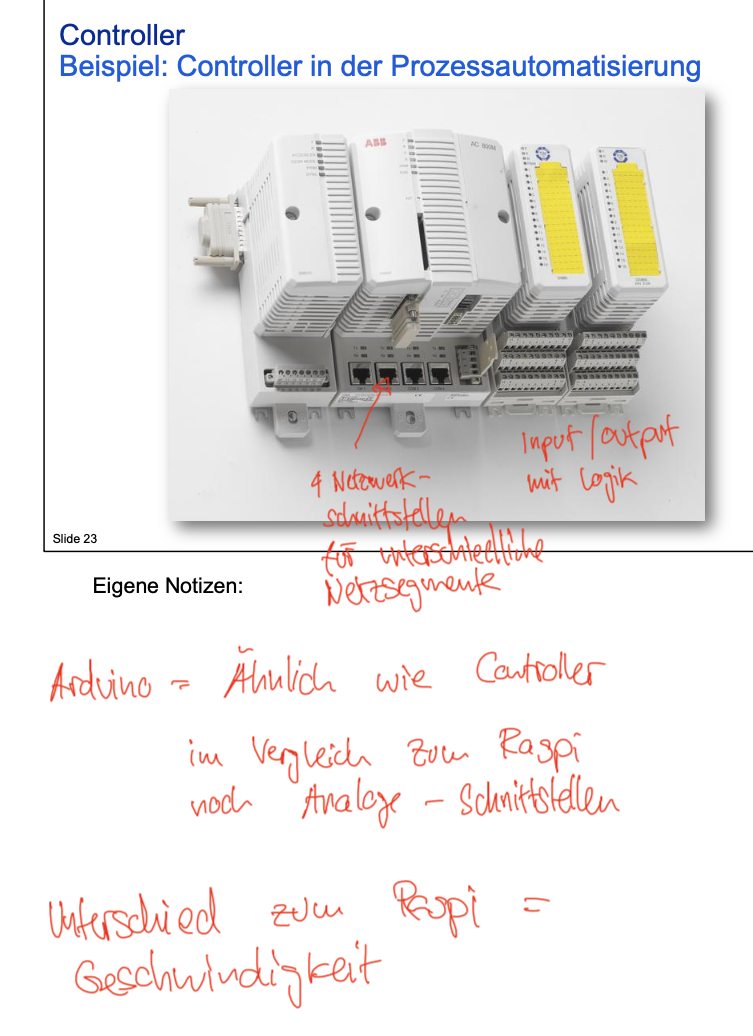 Controller
Beispiel: Controller in der Prozessautomatisierung
ABB
AC 800M
4 Netzwerk-
schnittstellen
für unterschiedliche
Netzsegmente
Input/output
mit Logik
Slide 23
Eigene Notizen:
Arduino = Ähnlich wie Controller
im Vergleich zum Raspi
noch Analoge - Schnittstellen
Unterschied zum Raspi =
Geschwindigkeit